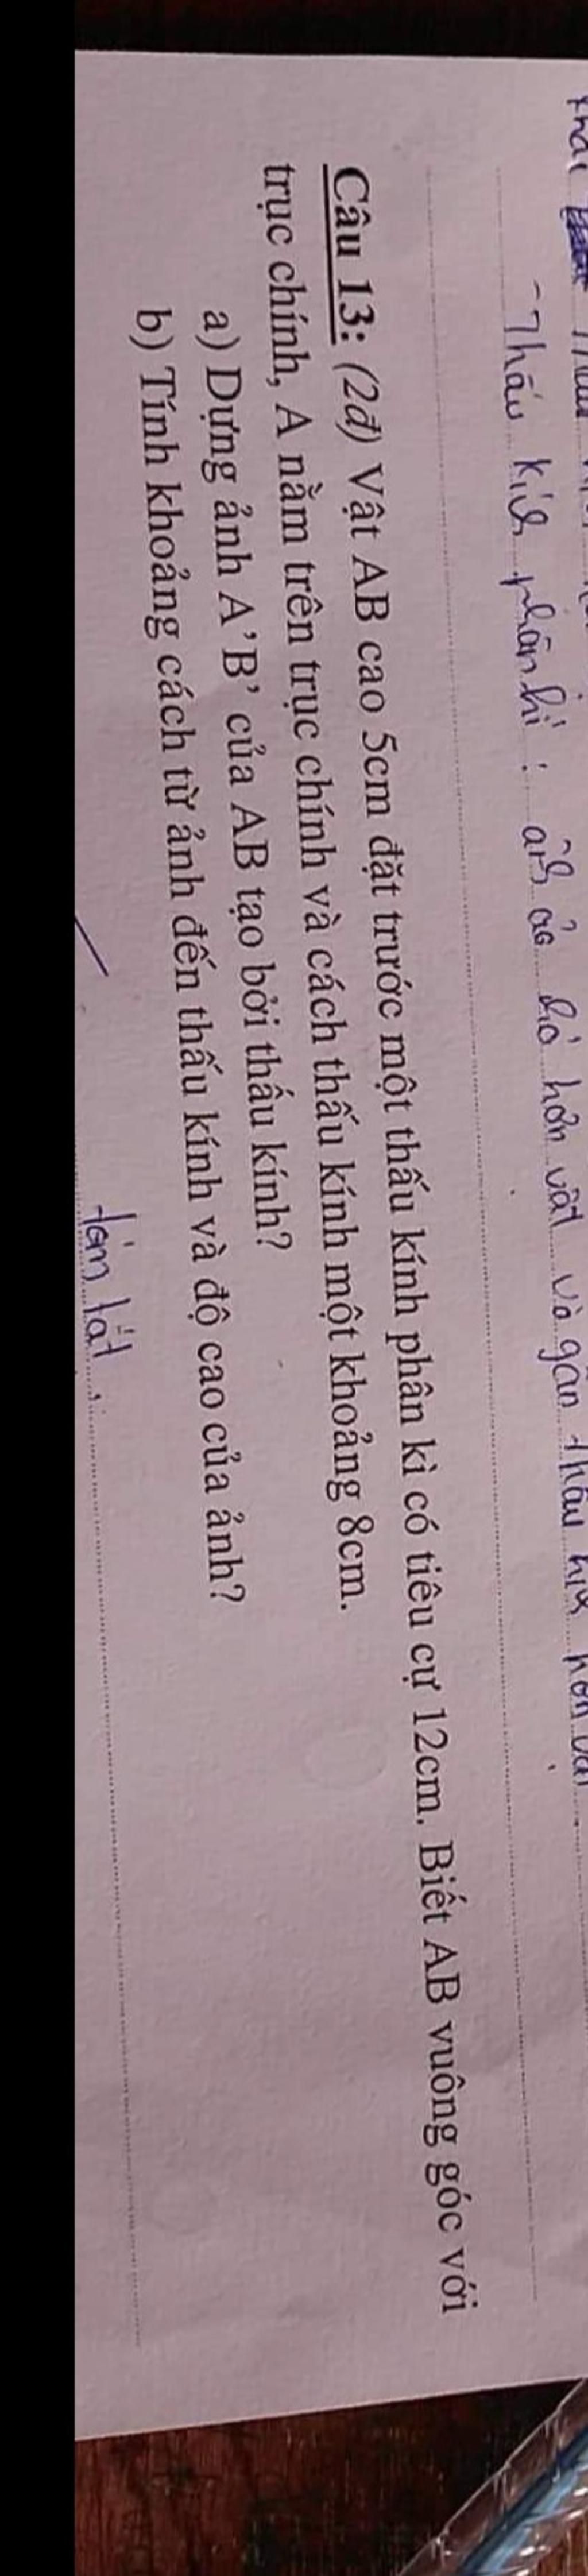 - Thấu kính phân kì : ảnh ảo nhỏ hơn vật và gần thấu kính hơn
Câu 13: (2đ) Vật AB cao 5cm đặt trước một thấu kính phân kì có tiêu cự 12cm. Biết AB vuông góc với
trục chính, A nằm trên trục chính và cách thấu kính một khoảng 8cm.
a) Dựng ảnh A’B’ của AB tạo bởi thấu kính?
b) Tính khoảng cách từ ảnh đến thấu kính và độ cao của ảnh?
tóm tắt :